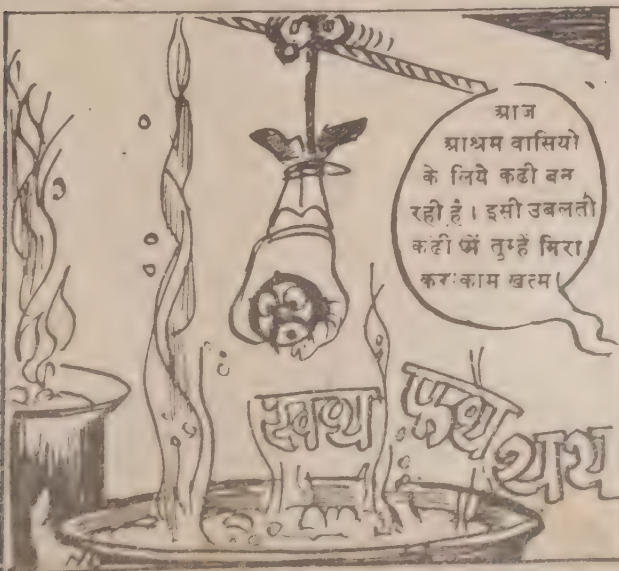 आज
आश्रम वासियो
के लिये कढी बन
रही हैं। इसी उबलती
कढी में तुम्हें गिरा
कर काम खत्म।
थथ